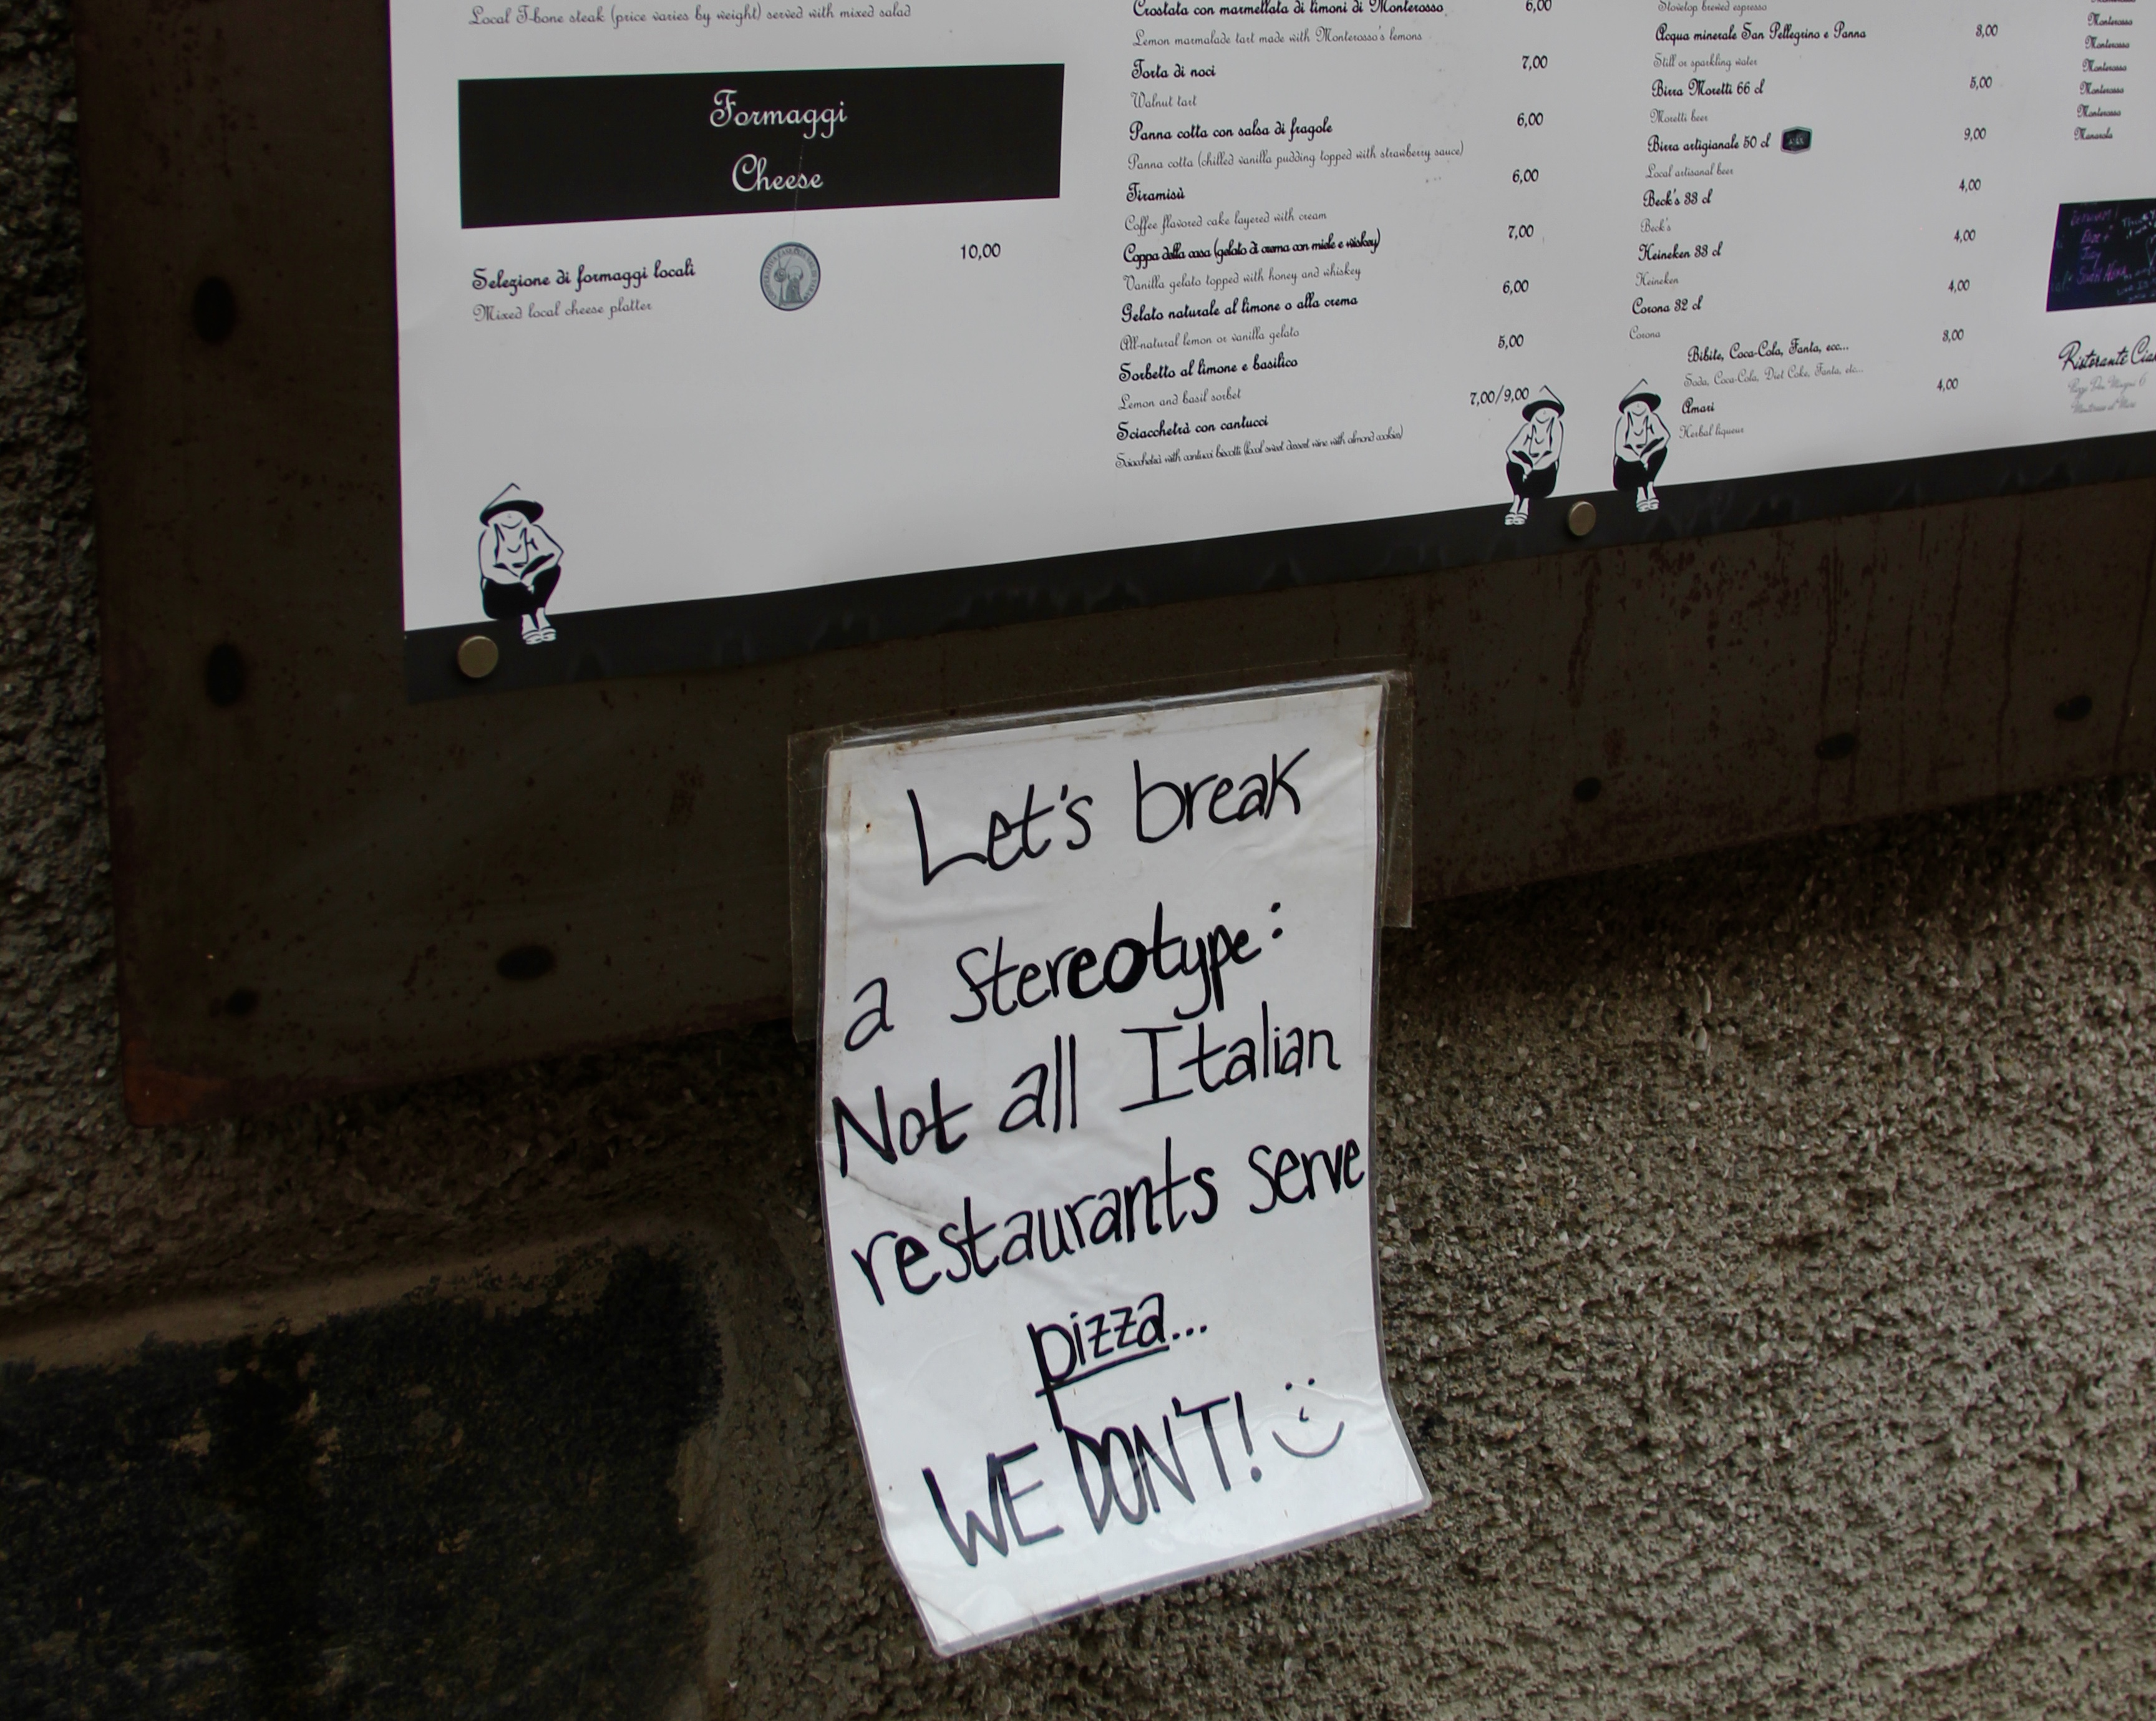 Local T-bone steak (price varies by weight) served with mixed salad
Formaggi
Cheese
Selezione di formaggi locali 10,00
Mixed local cheese platter
Crostata con marmellata di limoni di Monterosso 6,00
Lemon marmalade tart made with Monterosso's lemons
Torta di noci 7,00
Walnut tart
Panna cotta con salsa di fragole 6,00
Panna cotta (chilled vanilla pudding topped with strawberry sauce)
Tiramisù 6,00
Coffee flavored cake layered with cream
Coppa della casa (gelato di crema con miele e wiskey) 7,00
Vanilla gelato topped with honey and whiskey
Gelato naturale al limone o alla crema 6,00
All-natural lemon or vanilla gelato
Sorbetto al limone e basilico 5,00
Lemon and basil sorbet
Sciacchetrà con cantucci 7,00/9,00
Sciacchetrà with cantucci biscotti (local sweet dessert wine with almond cookies)
Stovetop brewed espresso
Acqua minerale San Pellegrino e Panna 3,00
Still or sparkling water
Birra Moretti 66 cl 5,00
Moretti beer
Birra artigianale 50 cl 9,00
Local artisanal beer
Beck's 33 cl 4,00
Beck's
Heineken 33 cl 4,00
Heineken
Corona 32 cl 4,00
Corona
Bibite, Coca-Cola, Fanta, ecc... 3,00
Soda, Coca-Cola, Diet Coke, Fanta, etc...
Amari 4,00
Herbal liqueur
Monterosso
Monterosso
Monterosso
Monterosso
Monterosso
Manarola
Ristorante
Let's break
a Stereotype:
Not all Italian
restaurants serve
pizza...
WE DON'T!